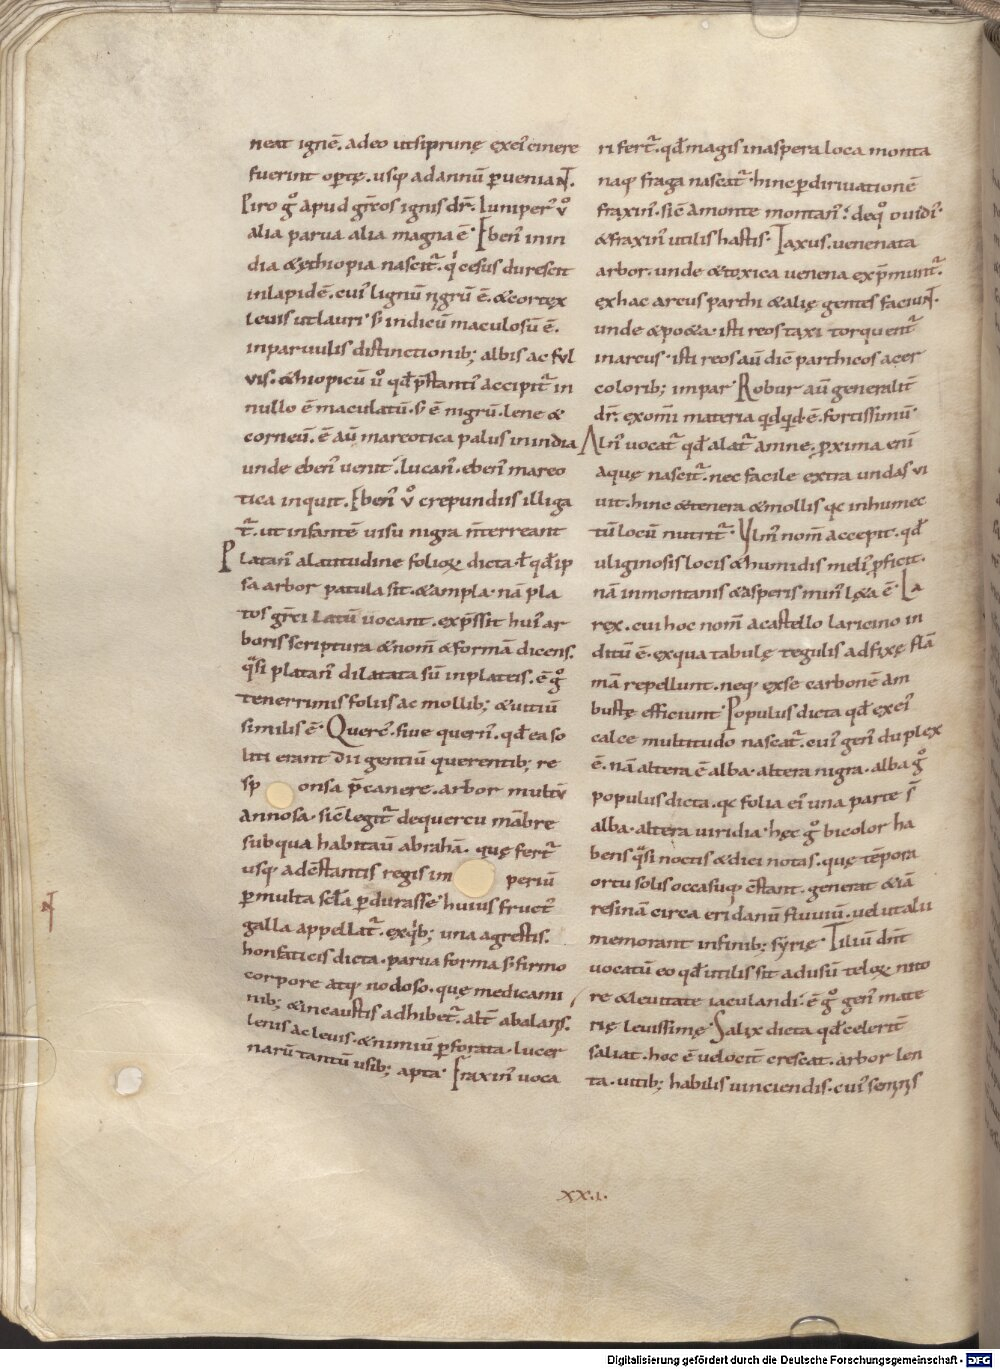 neat ignē. adeo ut si prunę exei' cinere
fuerint optę. usq; ad annū perueniaNT.
Piro gͦ apud gr̄eos ignis dr̄. Iuniper' vͦ
alia parua alia magna ē. Eben' in in
dia & ęthiopia nascit᷒. qͥ cesus durescit
in lapidē. cui' lignū nigrū ē. & cortex
leuis ut lauri. s; indicū maculosū ē.
in paruulis distinctionib; albis ac ful
vis. &hiopicū uͦ qđ p̄stanti' accipit᷒ in
nullo ē maculatū. s; ē nigrū. lene &
corneū. ē aū mareotica palus in india
unde eben' uenit. lucan'. eben' mareo
tica inquit. Eben' vͦ crepundiis illiga
t᷒. ut infantē uisu nigra n̄ terreant
Platan' a latitudine folioꝝ dicta. ł qđ ip
sa arbor patula sit. & ampla. nā pla
tos gr̄ei latū uocant. exp̄ssit hui' ar
boris scriptura & nom̄ & formā dicens.
qͣsi platan' dilatata sū in plateis. ē gͦ
tenerrimis foliis ac mollib; & uitiū
similis ē. Querc'. siue querin'. qđ ea so
liti erant dii gentiū querentib; re
sp onsa p̄canere. arbor multū
annosa. sic legit᷒ de quercu mābre
sub qua habitaū abrahā. quę fert᷒
usq; ad c̄stantis regis im periū
ꝑ multa scła ꝑdurasse. huius fruct'
galla appellat᷒. ex qͥb; una agrestis.
honfaticis dicta. parua forma s; firmo
corpore atq; nodoso. quę medicami
nib; & incaustis adhibet᷒. alt̄ abalanis.
lenis ac leuis. & nimiū ꝑforata. lucer
narū tantū usib; apta. Fraxin' uoca
ri fert᷒. qđ magis in aspera loca monta
naq; fraga nascat᷒. hinc ꝑ diriuationē
fraxin'. sic̄ a monte montan'. de qͦ ouidi'.
& fraxin' utilis hastis. Taxus. uenenata
arbor. unde & toxica uenena exp̄munt᷒.
ex hac arcus parthi & alię gentes faciuNT.
unde & po&a. isti reos taxi torquent᷒
in arcus. isti reos aū dic̄ parthicos acer
colorib; impar. Robur aū generalit̄
dr̄. ex om̄i materia qđqđ ē. fortissimū.
Aln' uocat᷒ qđ alat᷒ amne. ꝓxima eni
aquę nascit᷒. nec facile extra undas vi
uit. hinc & tenera & mollis qꝛ in humec
tū locū nutrit᷒. Ulm' nom̄ accepit. qđ
uliginosis locis & humidis meli' ꝓficit.
nā in montanis & asperis min' lęta ē. La
rex. cui hoc nom̄ a castello laricino in
ditū ē. ex qua tabulę tegulis adfixę flā
mā repellunt. neq; ex se carbonē am
bustę efficiunt. Populus dicta qđ ex ei'
calce multitudo nascat᷒. cui' gen' duplex
ē. nā altera ē alba. altera nigra. alba gͦ
populus dicta. qꝛ folia ei' una parte s̄
alba. altera uiridia. hęc gͦ bicolor ha
bens qͣsi noctis & diei notas. quę tēpora
ortu solis occasuq; c̄stant. generat & iā
resinā circa eridanū fluuiū. uel ut alu
memorant in finib; syrię. Tiliū dn̄t
uocatū eo qđ utilis sit ad usū teloꝝ nito
re & leuitate iaculandi. ē gͦ gen' mate
rię leuissimę. Salix dicta qđ celerit̄
saliat. hoc ē uelocit̄ crescat. arbor len
ta. uitib; habilis uinciendis. cui' semīs
xx.i.
Digitalisierung gefördert durch die Deutsche Forschungsgemeinschaft - DFG